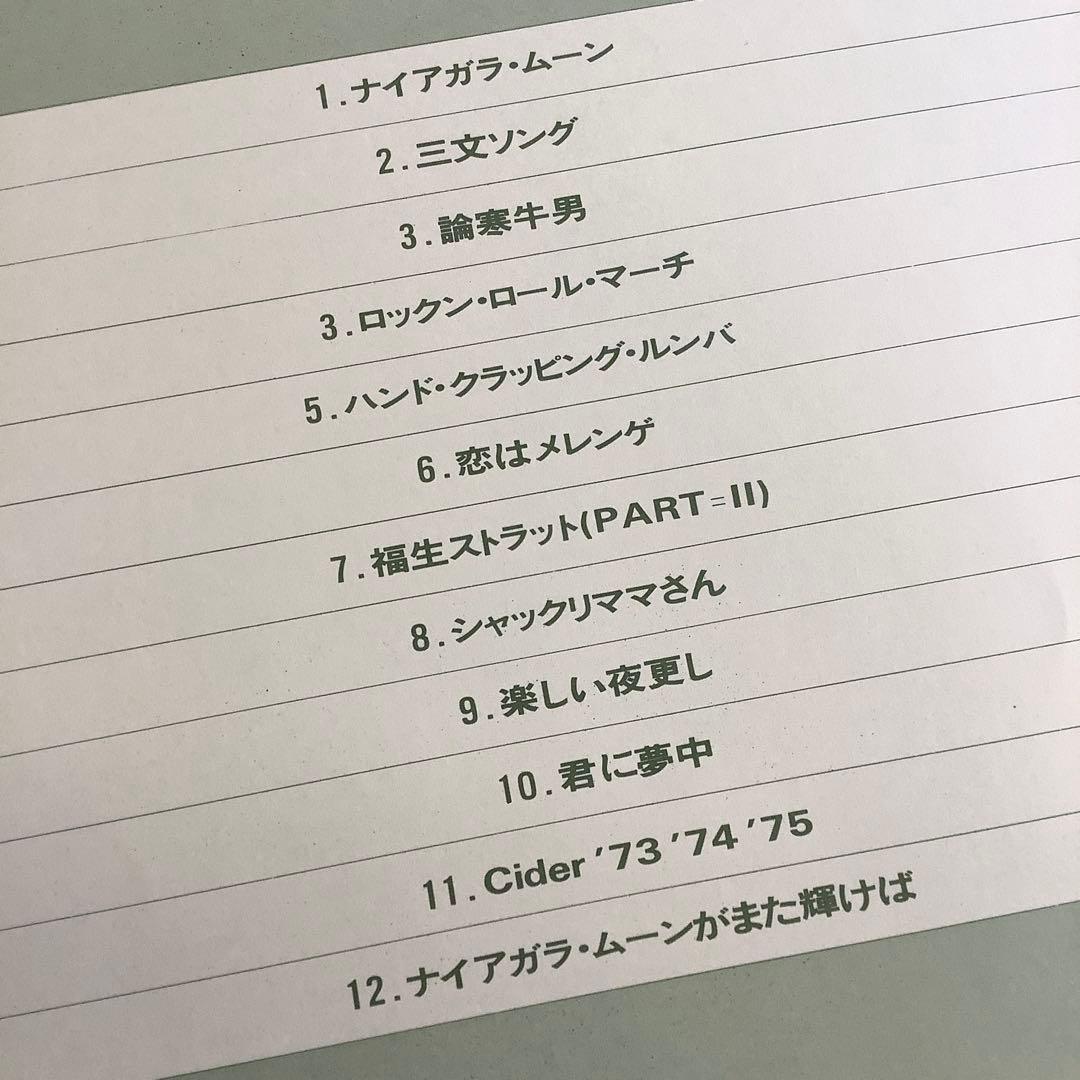 1.ナイアガラ・ムーン
2.三文ソング
3.論寒牛男
3.ロックン・ロール・マーチ
5.ハンド・クラッピング・ルンバ
6.恋はメレンゲ
7.福生ストラット(PART=II)
8.シャックリママさん
9.楽しい夜更し
10.君に夢中
11.Cider '73 '74 '75
12.ナイアガラ・ムーンがまた輝けば